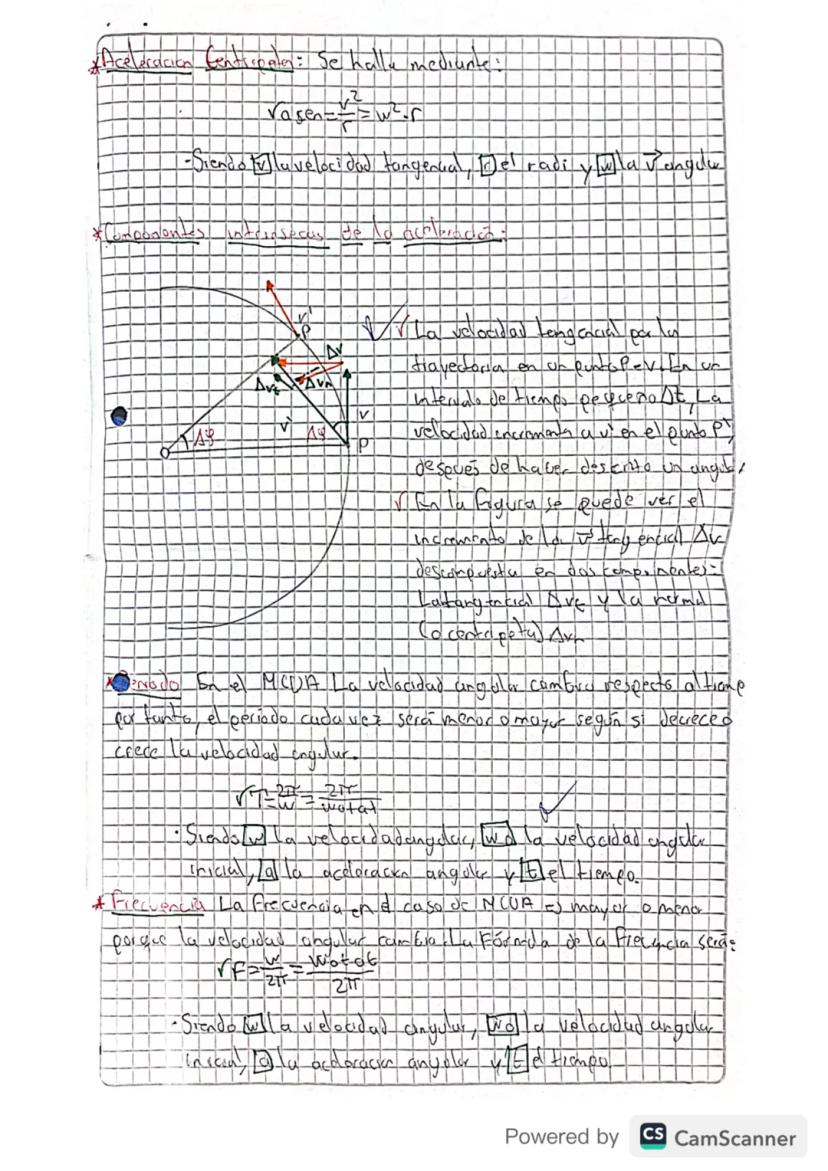 *Aceleracion Centripeta: Se halla mediante:
√asen=v²/r=w²·r
-Siendo v la velocidad tangencial, r el radi y w la v angular
*Componentes intrinsecas de la aceleración:
v'
P'
Δv
Δvt
Δvn
v'
v
Δφ
Δφ
O
P
√ La velocidad tengencial por la
trayectoria en un punto P es v. En un
intervalo de tiempo pequeño Δt, La
velocidad incrementa a v' en el punto P',
después de haber descrito un angulo
√ En la figura se puede ver el
incremento de la v tangencial Δv
descompuesta en dos componentes:
La tangencial Δvt y la normal
(o centripeta) Δvn
*Periodo En el MCUA La velocidad angular cambia respecto al tiempo
por tanto, el período cada vez será menor o mayor según si decrece o
crece la velocidad angular.
√T=2π/w=2π/wo+at
· Siendo w La velocidad angular, wo la velocidad angular
inicial, a la aceleracion angular y t el tiempo.
* Frecuencia La frecuencia en el caso de MCUA es mayor o menor
porque la velocidad angular cambia. La Fórmula de la frecuencia será:
√F=w/2π=wo+at/2π
· Siendo w la velocidad angular, wo la velocidad angular
inicial, a la aceleracion angular y t el tiempo.
Powered by CS CamScanner